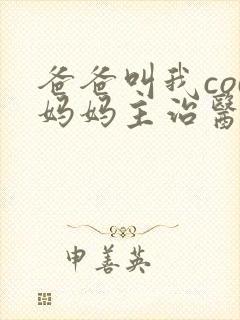 爸爸叫我co
妈妈主治醫
申善英